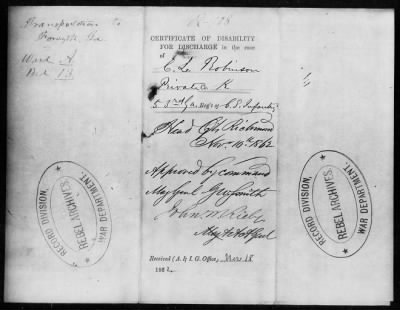 Transportation to
Forsyth, Ga
Ward A.
Bed 13
CERTIFICATE OF DISABILITY
FOR DISCHARGE in the case
of
E. L. Robinson
Private K
53rd Ga. Reg't of C.S. Infantry
Head Qrs Richmond
Nov. 10th 1862
Approved by command
Maj Genl G W Smith
John W
Maj & A A Genl
Received (A. & I. G. Office,) Nov 18
1862.
RECORD DIVISION,
REBEL ARCHIVES,
WAR DEPARTMENT.
RECORD DIVISION,
REBEL ARCHIVES,
WAR DEPARTMENT.